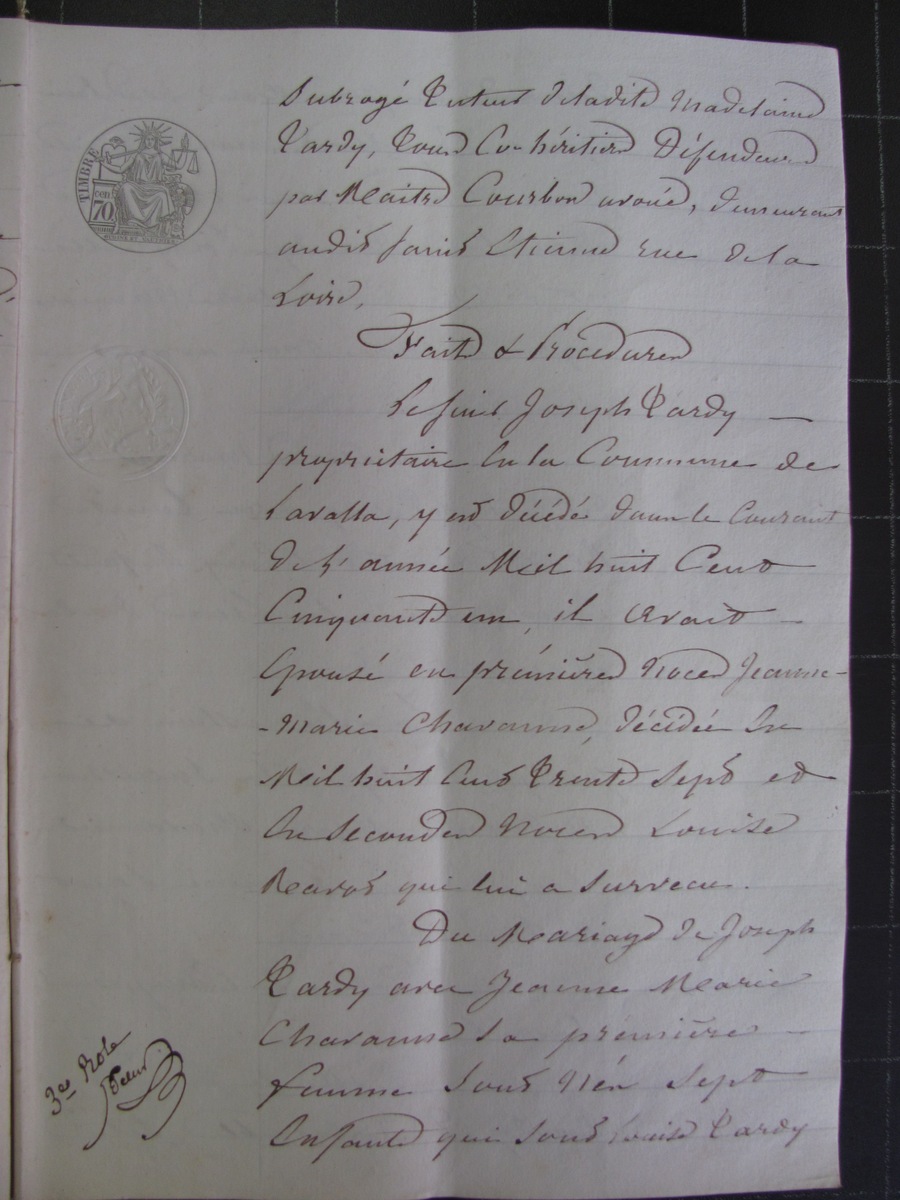 TIMBRE
cen
70
Subrogé tuteur de ladite Madelaine
Tardy, tous Co-héritiers Défendeurs
par Maitre Courbon avoué, demeurant
audit Saint Etienne rue de la
Loire,
Faits & Procedures
Le sieur Joseph Tardy —
propriétaire en la Commune de
Lavalla, y est décédé dans le courant
de l'année Mil huit Cent
Cinquante un, il avait —
épousé en prémières noces Jeanne-
-Marie Chavanne, décédée en
Mil huit Cent Trente Sept et
en Secondes Noces Louise
qui lui a Survecu.
Du Mariage de Joseph
Tardy avec Jeanne Marie
Chavanne Sa première —
femme Sont Nés Sept
Enfants qui Sont Louise Tardy
3e Role